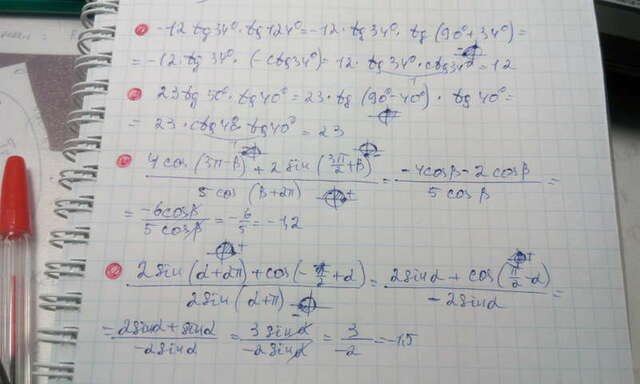 -12 tg 34° · tg 124° = -12 · tg 34° · tg (90° + 34°) =
= -12 · tg 34° · (-ctg 34°) = 12 · tg 34° · ctg 34° = 12
23 tg 50° · tg 40° = 23 · tg (90° - 40°) · tg 40° =
= 23 · ctg 40 · tg 40° = 23
4 cos (3π - β) + 2 sin (3π/2 + β) / 5 cos (β + 2π) = -4cosβ - 2 cosβ / 5 cosβ =
= -6cosβ / 5 cosβ = -6/5 = -1,2
2 sin (α + 2π) + cos (-π/2 + α) / 2 sin (α + π) = 2 sinα + cos (π/2 - α) / -2 sinα =
= 2 sinα + sinα / -2 sinα = 3 sinα / -2 sinα = 3/-2 = -1,5